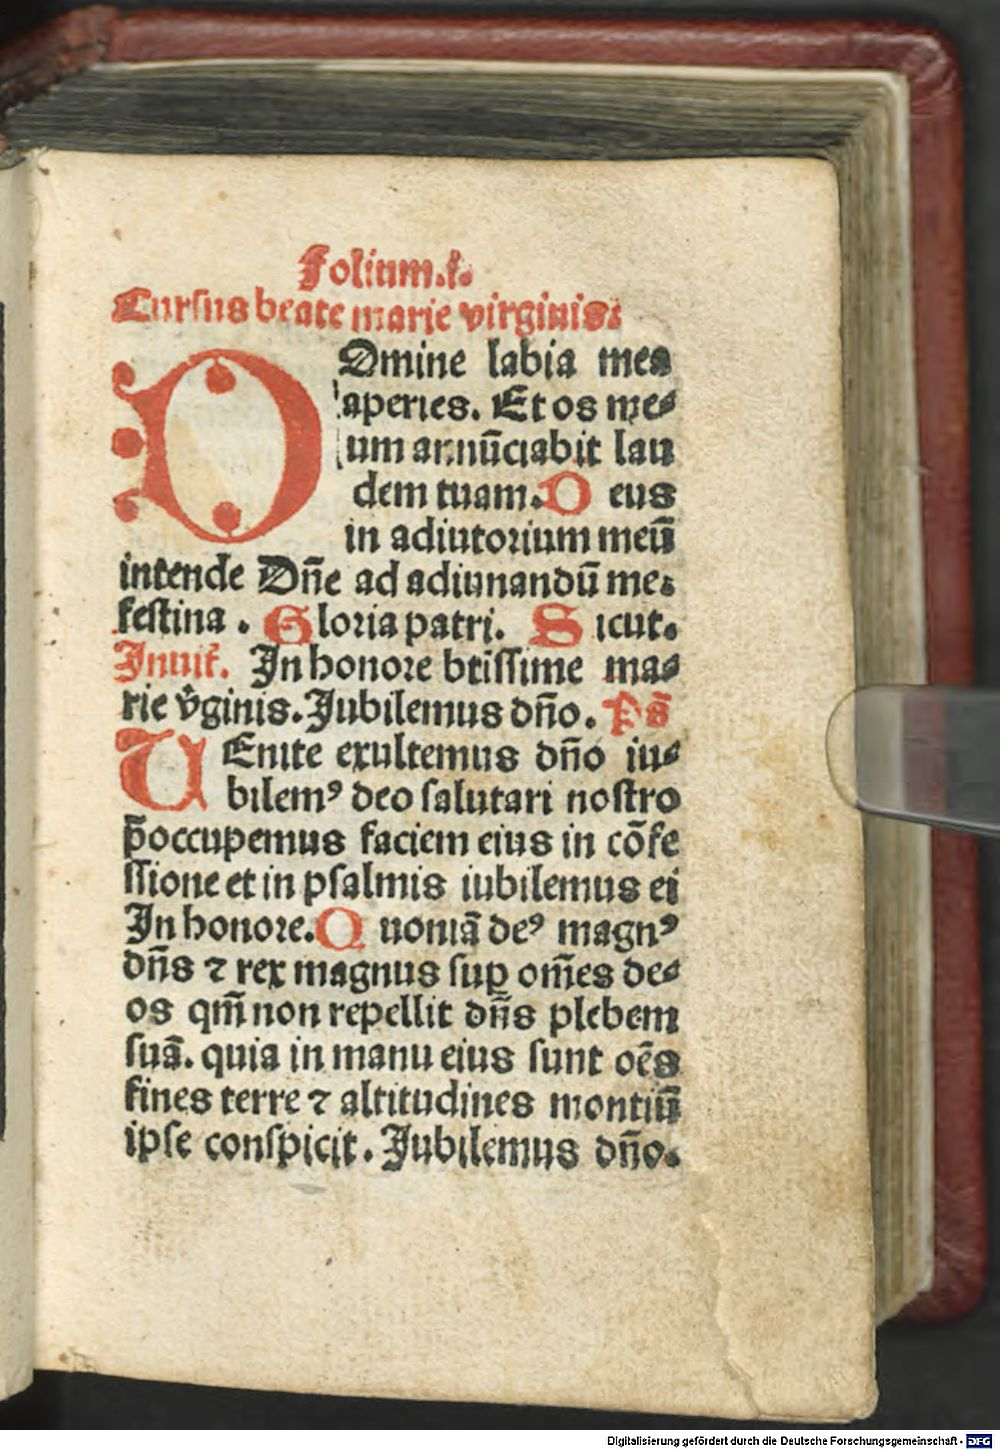 Folium.i.
Cursus beate marie virginis.
DOmine labia mea
aperies. Et os me⸗
um annūciabit lau
dem tuam. Deus
in adiutorium meū
intende Dn̄e ad adiuuandū me.
festina. Gloria patri. Sicut.
Inuit̄. In honore btissime ma⸗
rie v̓ginis. Jubilemus dn̄o. Ps̄
UEnite exultemus dn̄o iu⸗
bilemꝰ deo salutari nostro
p̄occupemus faciem eius in cōfe
ssione et in psalmis iubilemus ei
In honore. Quoniā deꝰ magnꝰ
dn̄s ⁊ rex magnus suꝑ om̄es de⸗
os qm̄ non repellit dn̄s plebem
suā. quia in manu eius sunt oēs
fines terre ⁊ altitudines montiū
ipse conspicit. Jubilemus dn̄o.
Digitalisierung gefördert durch die Deutsche Forschungsgemeinschaft - DFG